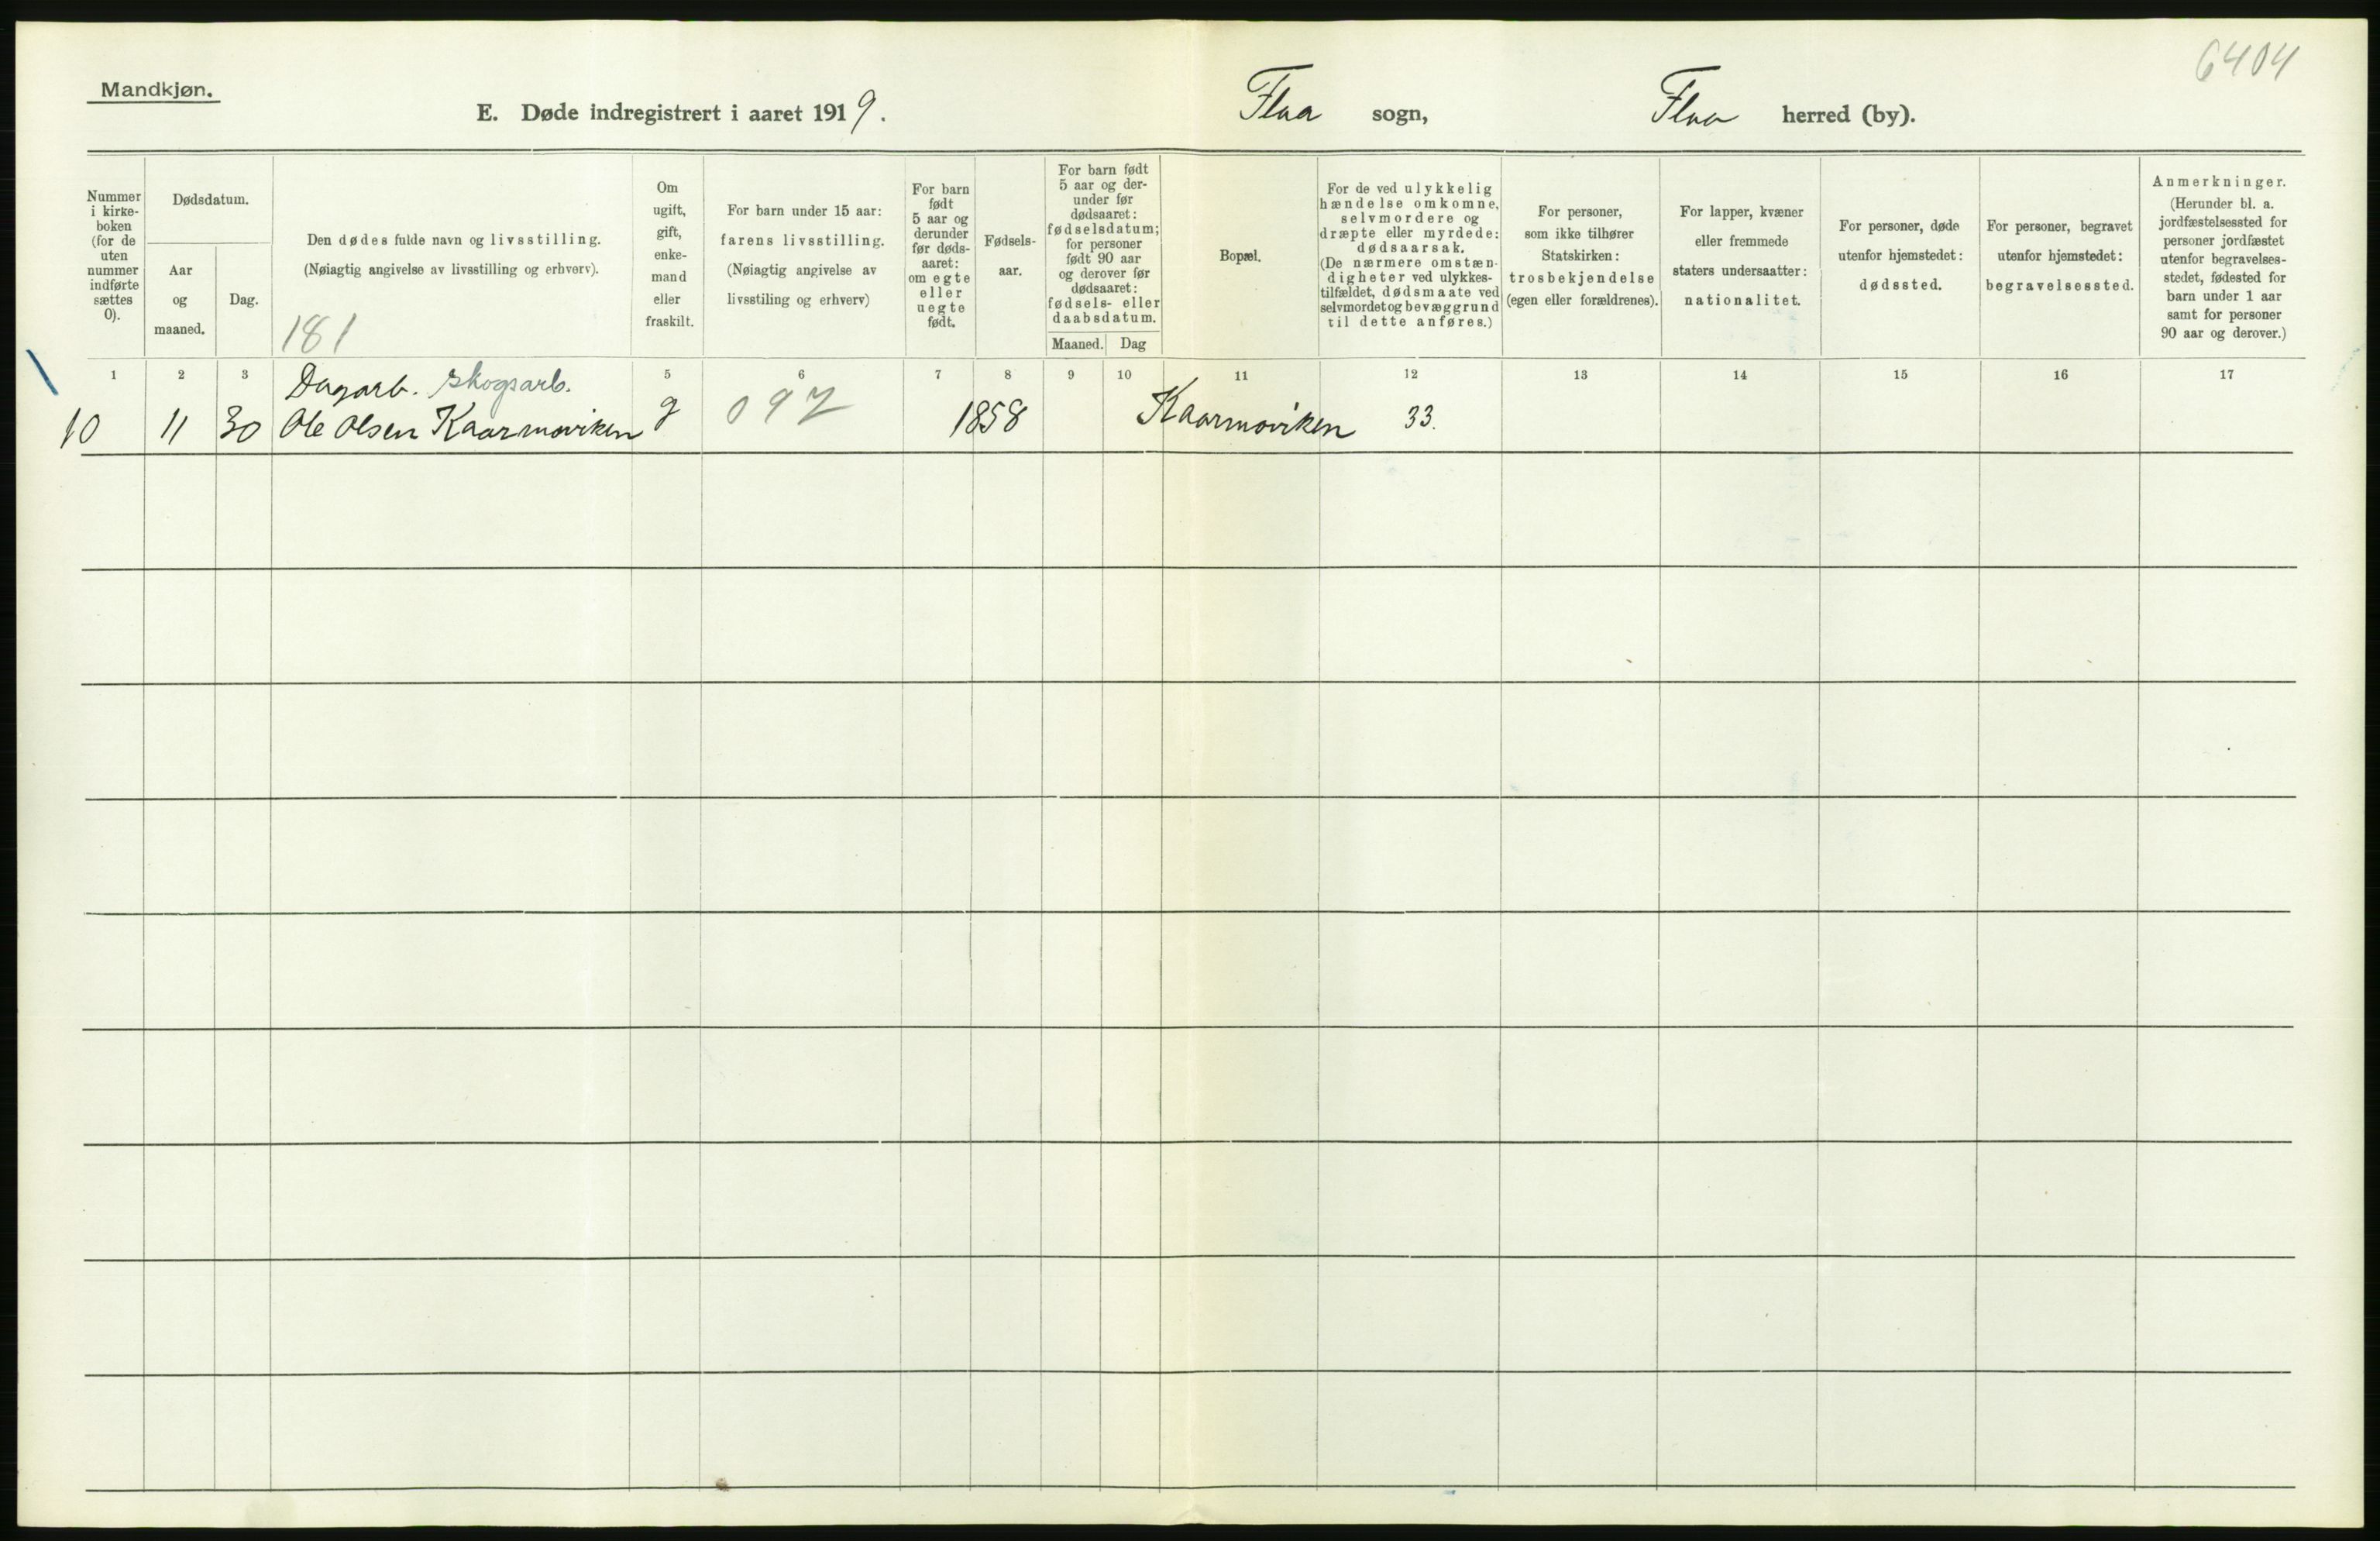 6404
Mandkjøn.
E. Døde indregistrert i aaret 1919. Flaa sogn, Flaa herred (by).
Nummer i kirke- boken (for de uten nummer indførte sættes 0).
Dødsdatum.
Aar og maaned.
Dag.
Den dødes fulde navn og livsstilling.
(Nøiagtig angivelse av livsstilling og erhverv).
181
Om ugift, gift, enke- mand eller fraskilt.
For barn under 15 aar:
farens livsstilling.
(Nøiagtig angivelse av
livsstiling og erhverv)
For barn født 5 aar og derunder før døds- aaret: om egte eller uegte født.
Fødsels- aar.
For barn født 5 aar og der- under før dødsaaret: fødselsdatum; for personer født 90 aar og derover før dødsaaret: fødsels- eller daabsdatum.
Maaned. Dag
Bopæl.
For de ved ulykkelig hændelse omkomne, selvmordere og dræpte eller myrdede: dødsaarsak. (De nærmere omstæn- digheter ved ulykkes- tilfældet, dødsmaate ved selvmordet og bevæggrund til dette anføres.)
For personer, som ikke tilhører Statskirken: trosbekjendelse (egen eller forældrenes).
For lapper, kvæner eller fremmede staters undersaatter: nationalitet.
For personer, døde utenfor hjemstedet: dødssted.
For personer, begravet utenfor hjemstedet: begravelsessted.
Anmerkninger. (Herunder bl. a. jordfæstelsessted for personer jordfæstet utenfor begravelses- stedet, fødested for barn under 1 aar samt for personer 90 aar og derover.)
1 2 3 5 6 7 8 9 10 11 12 13 14 15 16 17
Dagarb. Skogsarb.
10 11 30 Ole Olsen Kaarmoviken g 097 1858 Kaarmoviken 33.